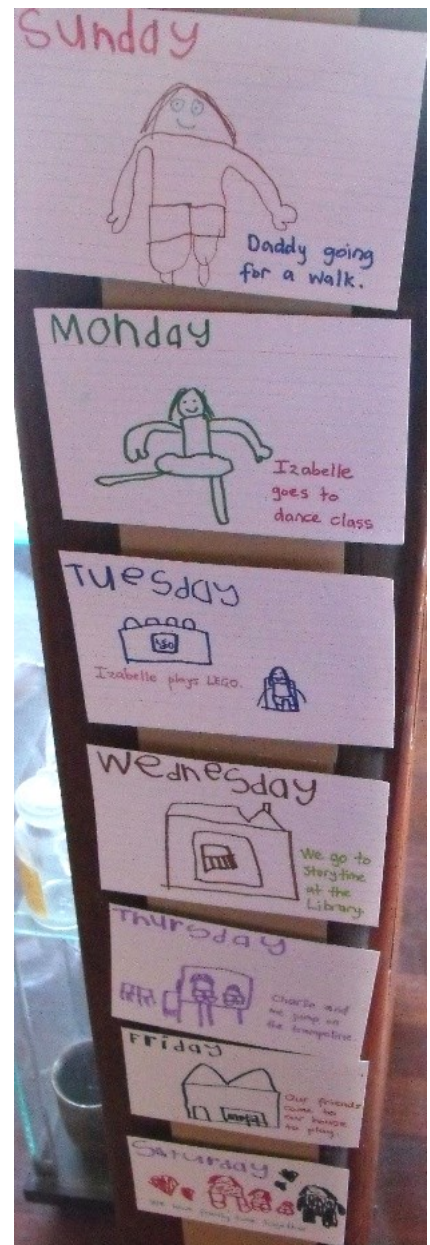 Sunday
Daddy going
for a walk.
Monday
Izabelle
goes to
dance class
Tuesday
Izabelle plays LEGO.
Wednesday
We go to
Storytime
at the
Library.
Thursday
Charlie and
me jump on
the trampoline.
Friday
Our friends
come to
our house
to play.
Saturday
We have family time together